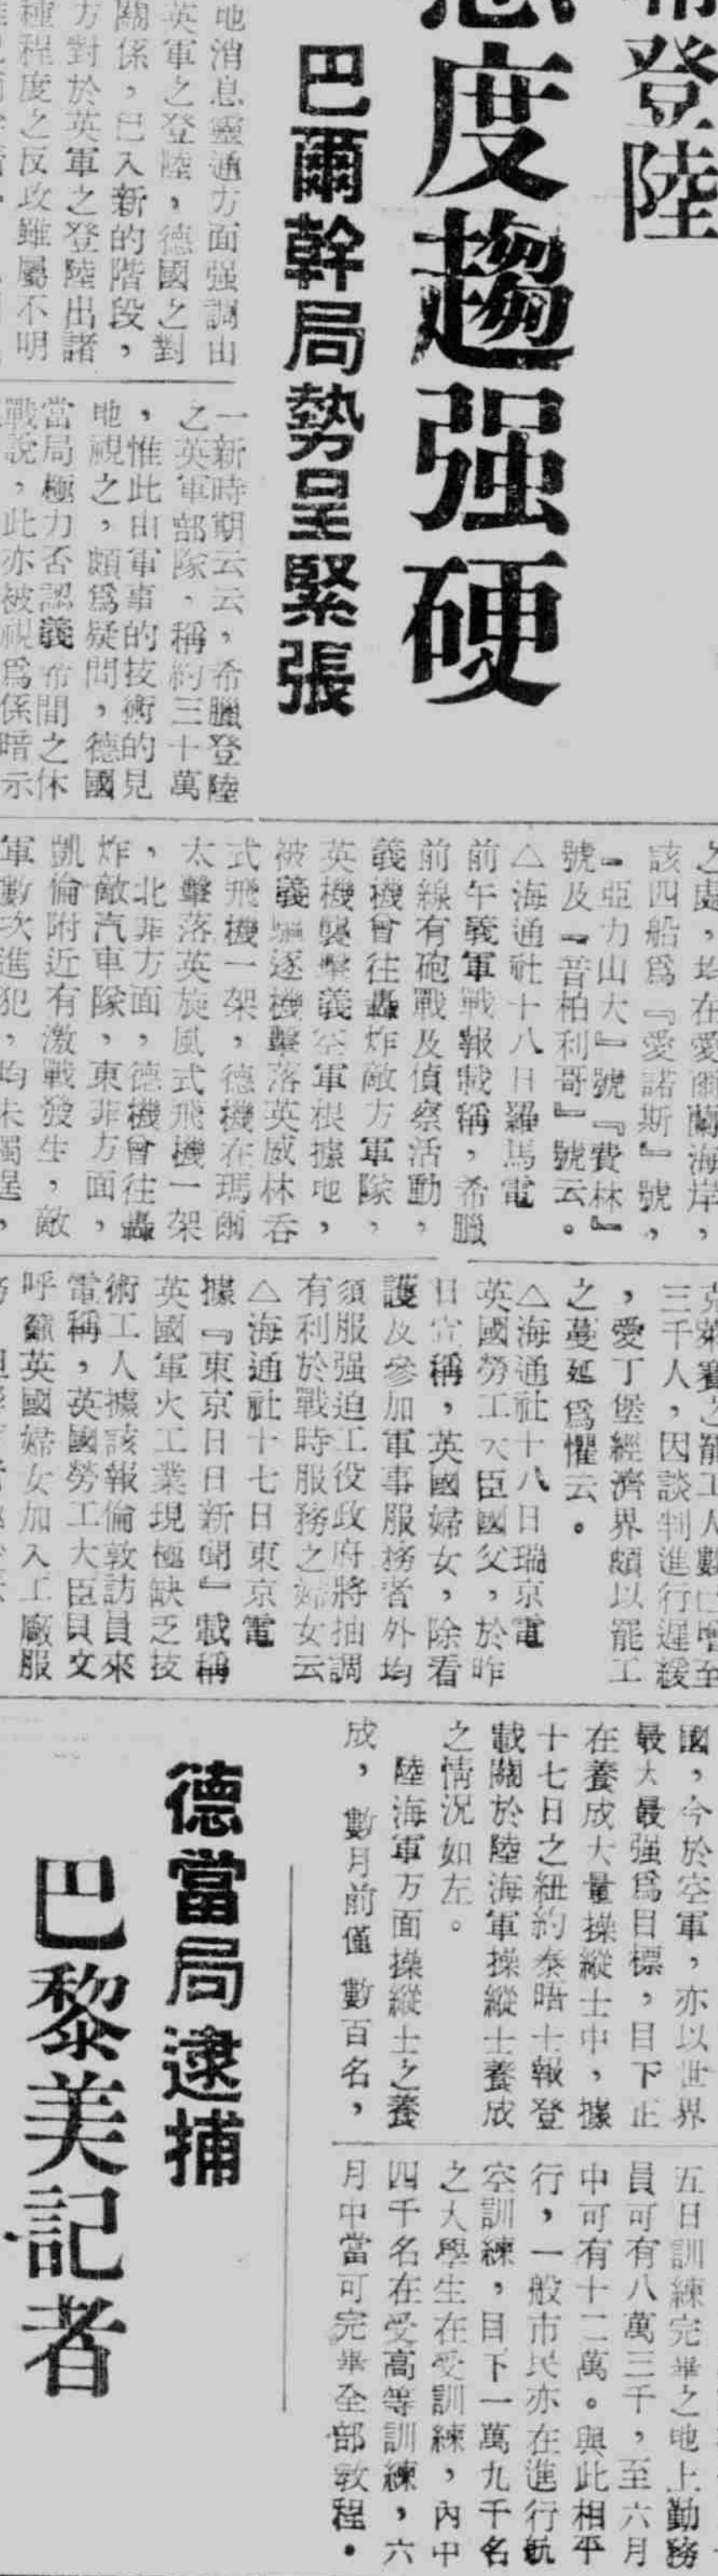 希登陸
態度趨强硬
巴爾幹局勢呈緊張
地消息靈通方面强調山
英軍之登陸，德國之對
關係，已入新的階段，
方對於英軍之登陸出諸
種程度之反攻雖屬不明
一新時期云云，希臘登陸
之英軍部隊，稱約三十萬
，惟此由軍事的技術的見
地視之，頗爲疑問，德國
當局極力否認義希間之休
戰說，此亦被視爲係暗示
之處，均在愛爾蘭海岸，
該四船爲『愛諾斯』號，
『亞力山大』號『費林』
號及『音柏利哥』號云。
△海通社十八日羅馬電
前午義軍戰報載稱，希臘
前線有砲戰及偵察活動，
義機會往轟炸敵方軍隊，
英機襲擊義空軍根據地，
被義驅逐機擊落英威林吞
式飛機一架，德機在瑪爾
太擊落英旋風式飛機一架
，北非方面，德機會往轟
炸敵汽車隊，東非方面，
凱倫附近有激戰發生，敵
軍數次進犯，均未獨逞，
克萊賽之罷工人數已增至
三千人，因談判進行遲緩
，愛丁堡經濟界頗以罷工
之蔓延爲懼云。
△海通社十八日瑞京電
英國勞工大臣國父，於昨
日宣稱，英國婦女，除看
護及參加軍事服務者外均
須服强迫工役政府將抽調
有利於戰時服務之婦女云
△海通社十七日東京電
據『東京日日新聞』載稱
英國軍火工業現極缺乏技
術工人據該報倫敦訪員來
電稱，英國勞工大臣貝文
呼籲英國婦女加入工廠服
國，今於空軍，亦以世界
最大最强爲目標，目下正
在養成大量操縱士中，據
十七日之紐約泰晤士報登
載關於陸海軍操縱士養成
之情况如左。
陸海軍方面操縱士之養
成，數月前僅數百名，
五日訓練完畢之地上勤務
員可有八萬三千，至六月
中可有十二萬。與此相平
行，一般市民亦在進行航
空訓練，目下一萬九千名
之大學生在受訓練，內中
四千名在受高等訓練，六
月中當可完畢全部敎程。
德當局逮捕
巴黎美記者